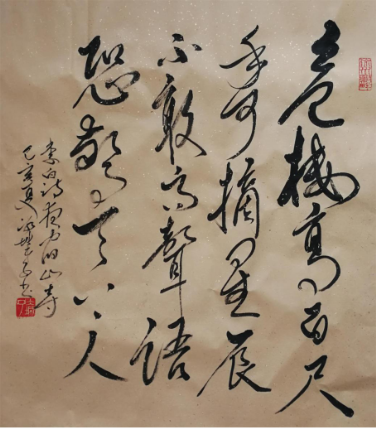 危樓高百尺
手可摘星辰
不敢高聲語
恐驚天上人
李白詩夜宿山寺
己亥夏 书